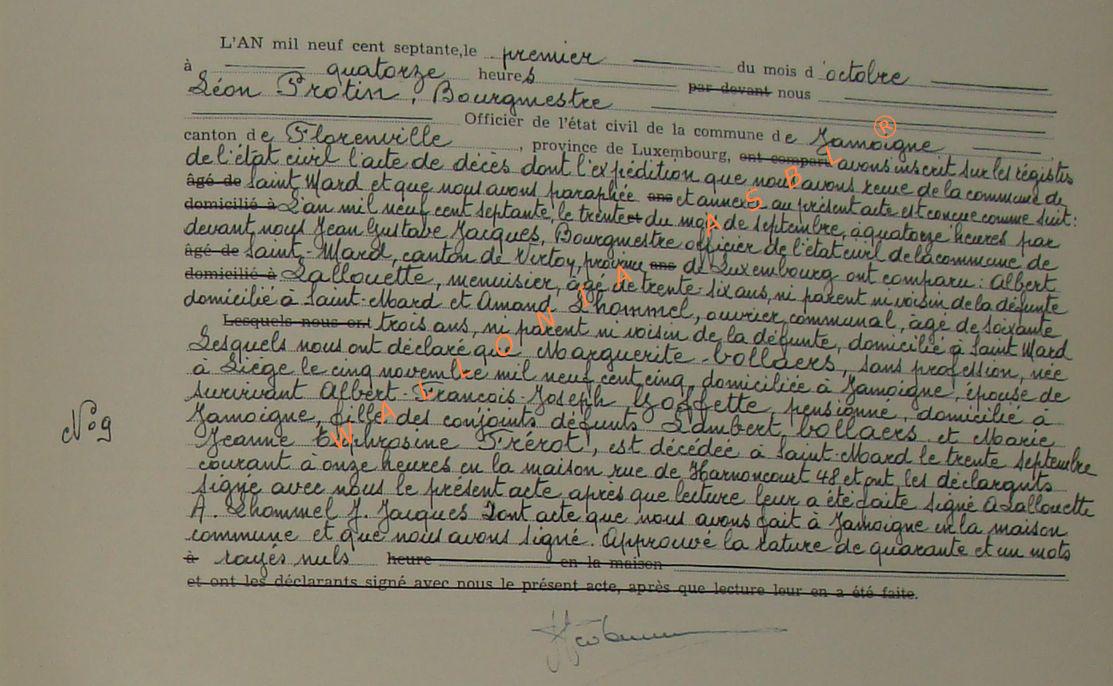 L'AN mil neuf cent septante, le premier du mois d'octobre
à quatorze heures par devant nous
Léon Protin, Bourgmestre
Officier de l'état civil de la commune de Jamoigne
canton de Florenville, province de Luxembourg, ont comparu avons inscrit sur les régistres
de l'état civil l'acte de décès dont l'expédition que nous avons reçue de la commune de
âgé de Saint Mard et que nous avons paraphée ans et annexée au présent acte est conçue comme suit:
domicilié à L'an mil neuf cent septante, le trente et du mois de septembre, à quatorze heures par
devant nous Jean Gustave Jacques, Bourgmestre officier de l'état civil de la commune de
âgé de Saint-Mard, canton de Virton, province ans de Luxembourg ont comparu: Albert
domicilié à Lallouette, menuisier, âgé de trente-six ans, ni parent ni voisin de la défunte
domicilié à Saint-Mard et Amand Lhommel, ouvrier communal, âgé de soixante
Lesquels nous ont trois ans, ni parent ni voisin de la défunte, domicilié à Saint Mard
Lesquels nous ont déclaré que Marguerite Collaers, sans profession, née
à Liège le cinq novembre mil neuf cent cinq, domiciliée à Jamoigne, épouse de
survivant Albert-François-Joseph Goffette, pensionné, domicilié à
Jamoigne, fille des conjoints défunts Lambert Collaers et Marie
N°9
Jeanne Euphrosine Frérot, est décédée à Saint-Mard le trente septembre
courant à onze heures en la maison rue de Harnoncourt 48 et ont, les déclarants
signé avec nous le présent acte, après que lecture leur a été faite signé A Lallouette
A. Lhommel J. Jacques Dont acte que nous avons fait à Jamoigne en la maison
commune et que nous avons signé. Approuvé la rature de quarante et un mots
à rayés nuls heure en la maison
et ont les déclarants signé avec nous le présent acte, après que lecture leur en a été faite.
WALLONIA ASBL ®